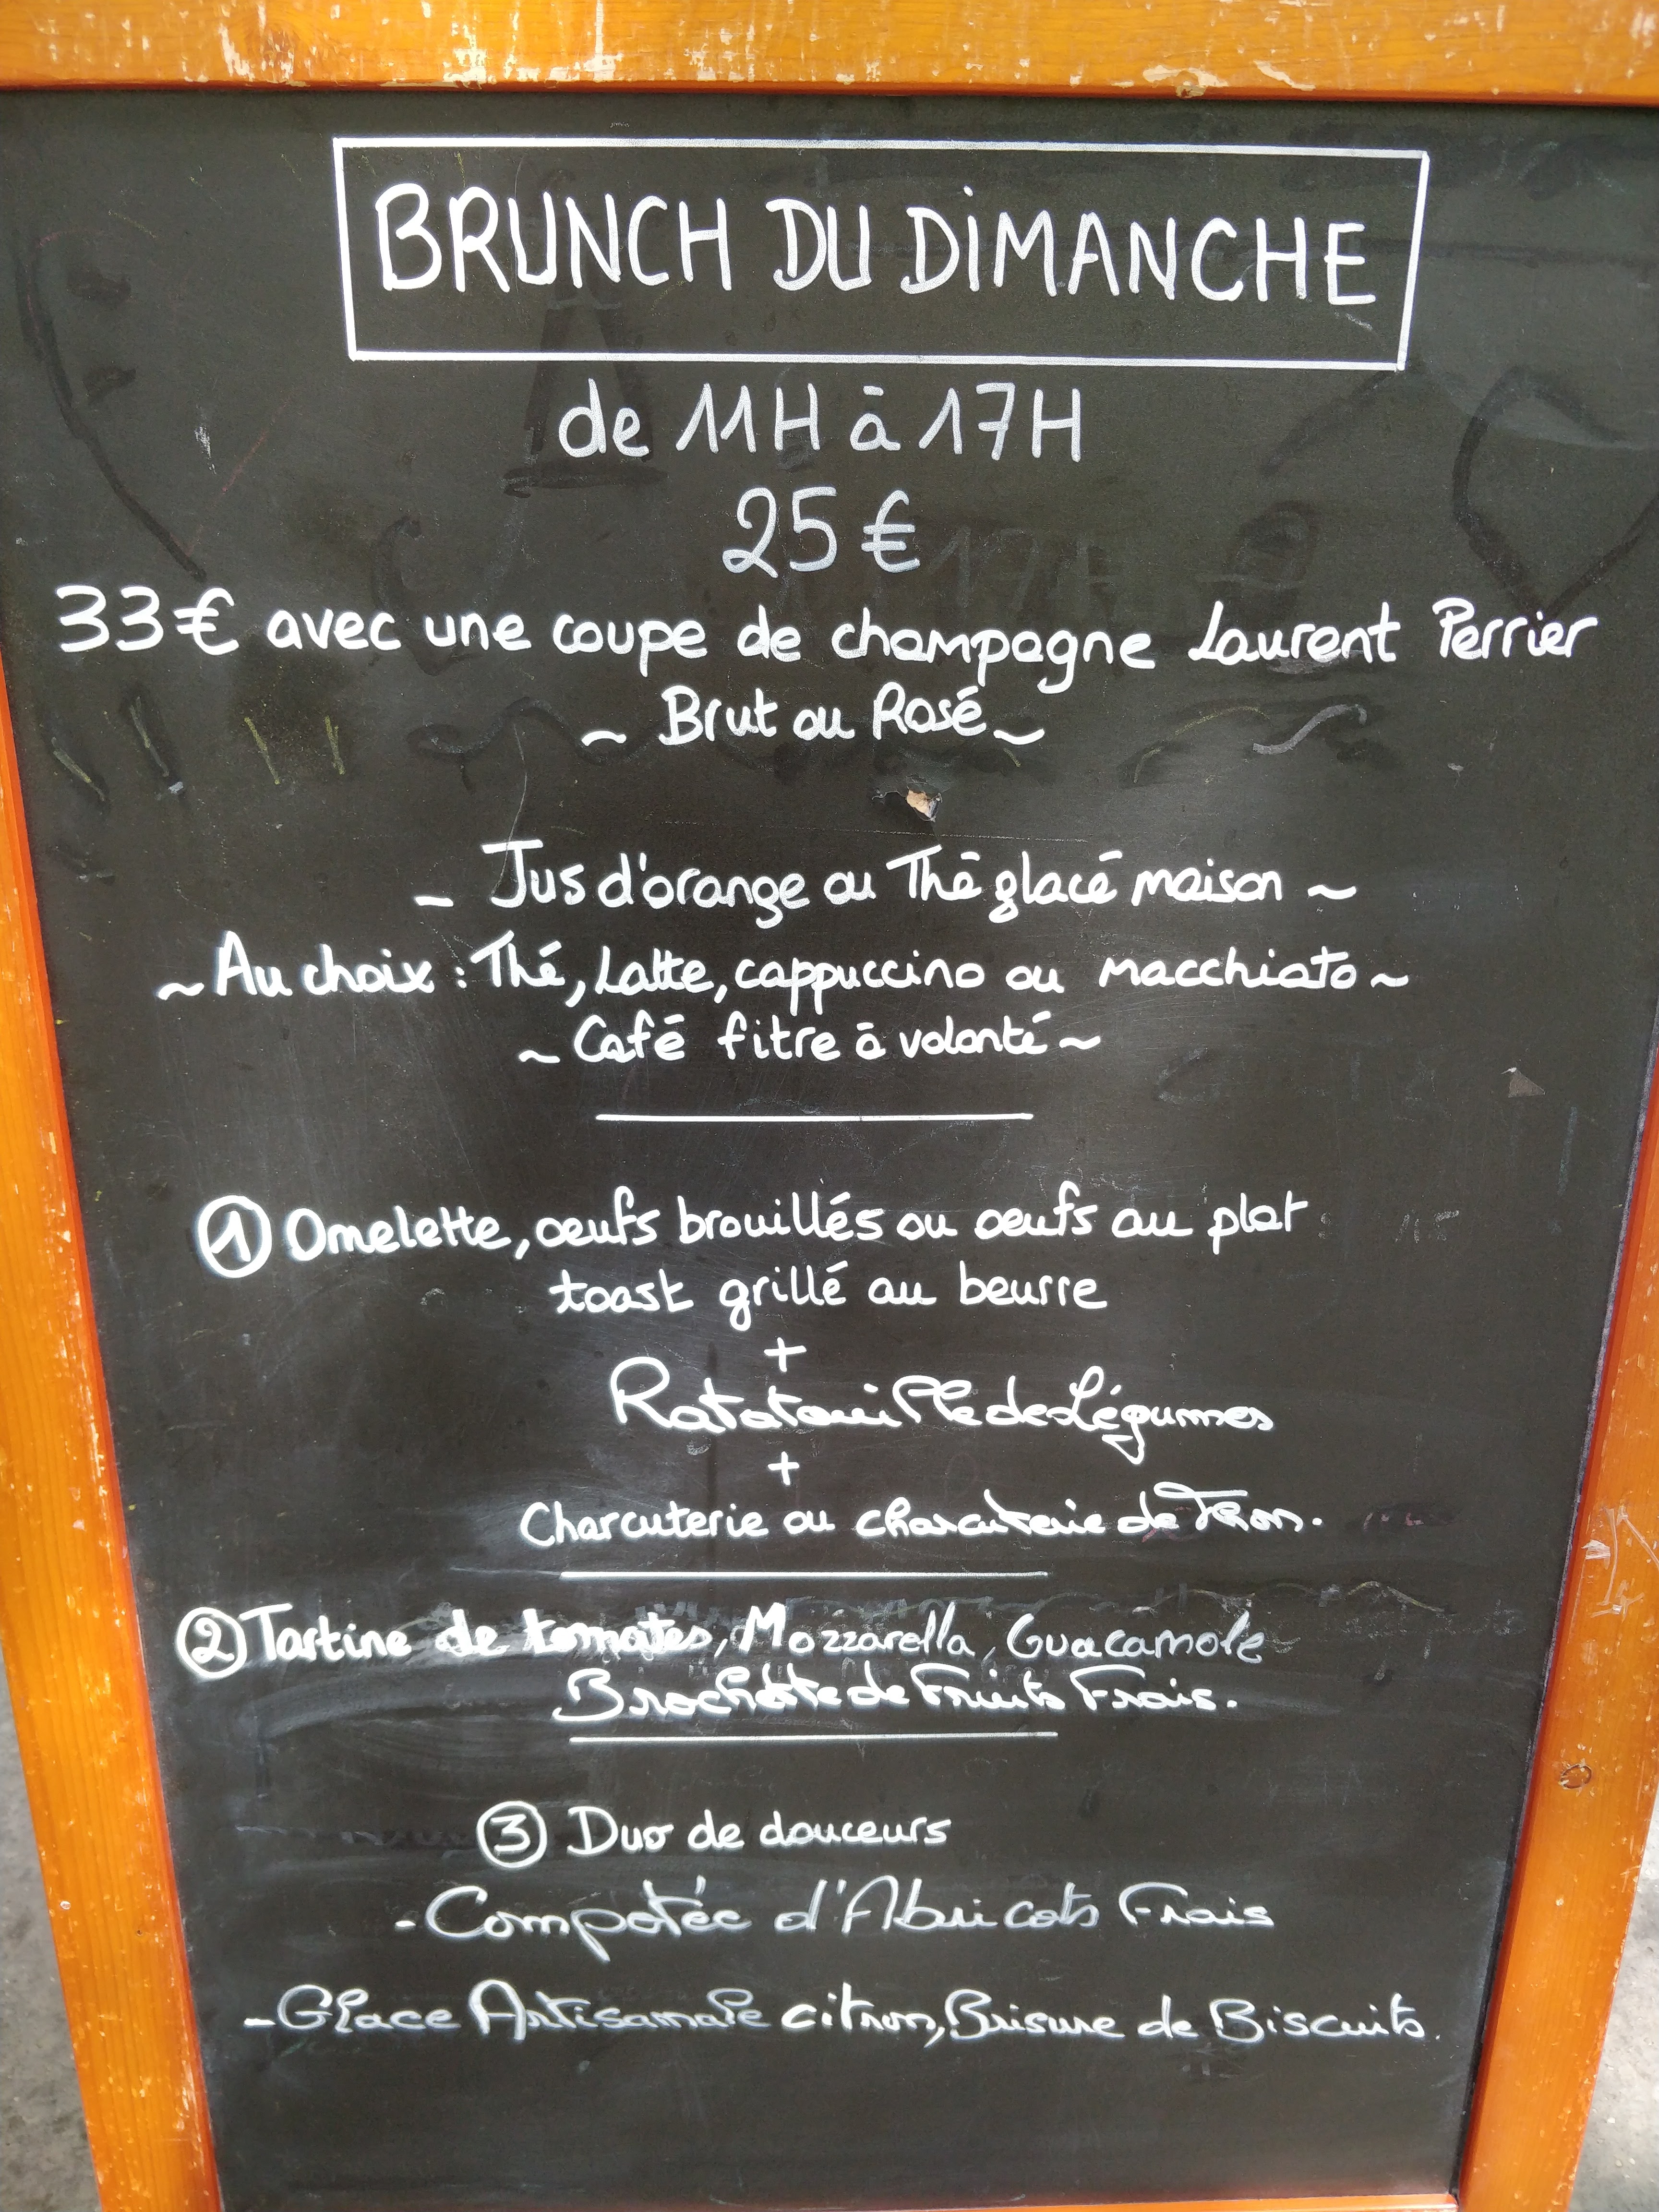 BRUNCH DU DIMANCHE
de 11H à 17H
25 €
33€ avec une coupe de champagne Laurent Perrier
~ Brut ou Rosé ~
- Jus d'orange ou Thé glacé maison ~
~ Au choix : Thé, Latte, cappuccino ou macchiato ~
~ Café fitre à volonté ~
① Omelette, oeufs brouillés ou oeufs au plat
toast grillé au beurre
+
Ratatouille de Légumes
+
Charcuterie ou charcuterie de Thon.
② Tartine de tomates, Mozzarella, Guacamole
Brochette de Fruits Frais.
③ Duo de douceurs
- Compotée d'Abricots Frais
- Glace Artisanale citron, Brisure de Biscuits.